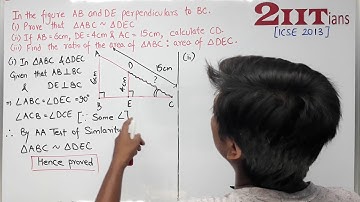 In the figure AB and DE perpendiculars to BC.
(i) Prove that △ABC ~ △DEC
(ii) If AB=6cm, DE=4cm & AC=15cm, calculate CD.
(iii) Find the ratio of the area of △ABC : area of △DEC.
2IITians
[ICSE 2013]
(i) In △ABC & △DEC
Given that AB⊥BC
& DE⊥BC
⇒ ∠ABC=∠DEC=90°
∠ACB=∠DCE [∵ Same ∠]
∴ By AA Test of Simlarity
△ABC ~ △DEC
Hence proved
A
D
15cm
6cm
4cm
?
B
E
C
(ii)